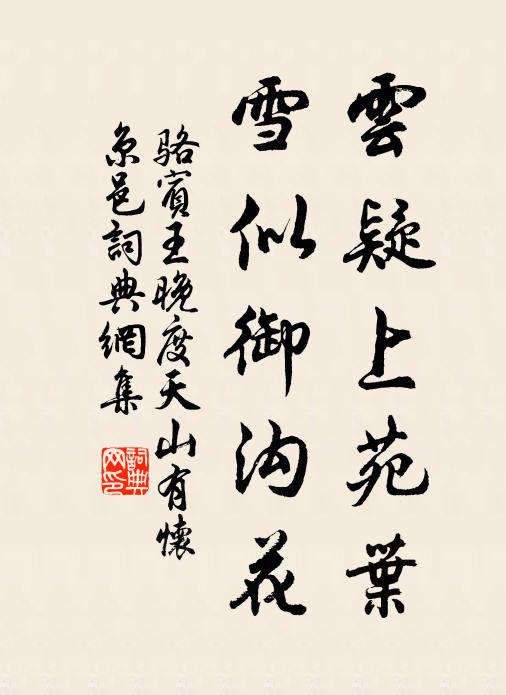 雲疑上苑葉
雪似御沟花
駱賓王晚度天山有懷
京邑詞典網集
詞典
网印